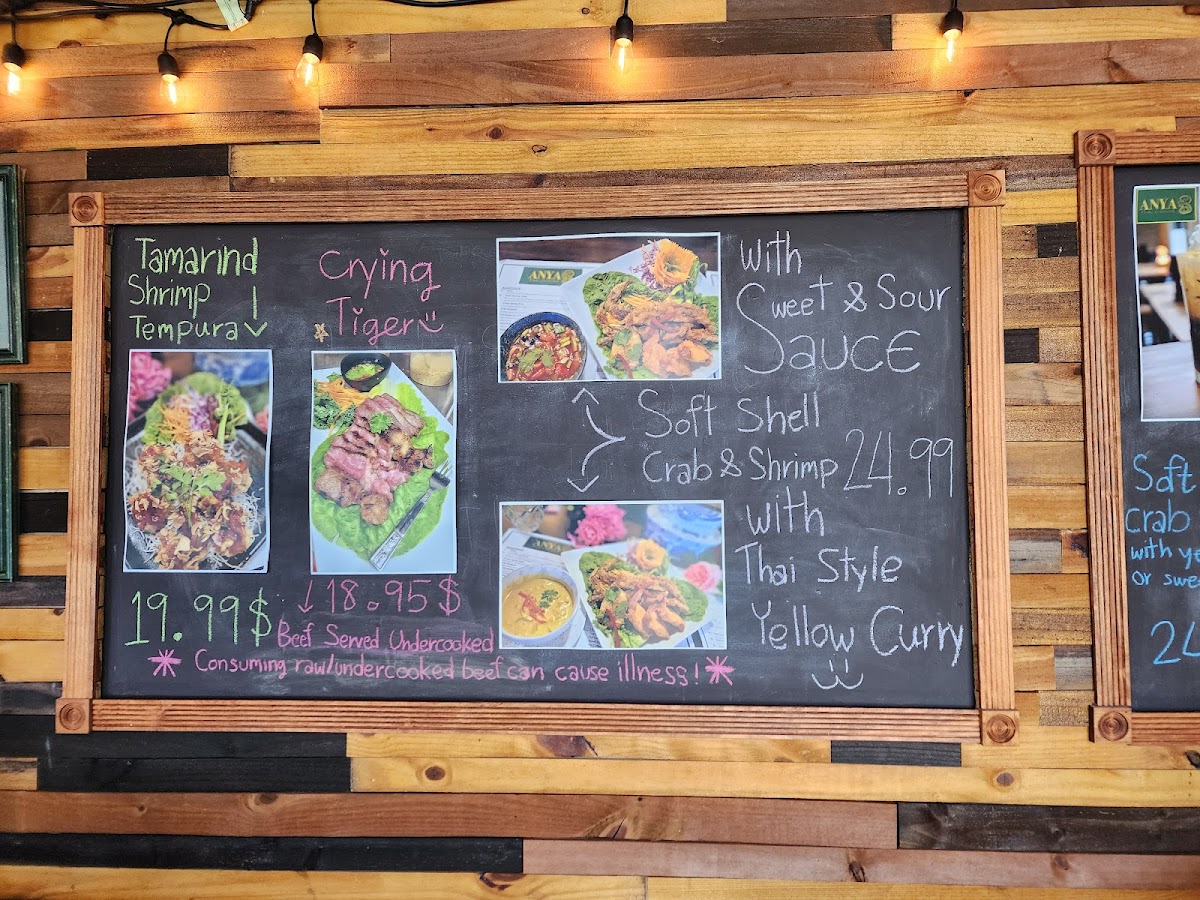 Tamarind
Shrimp
Tempura
19.99$
Crying
Tiger
18.95$
Beef Served Undercooked
Consuming raw/undercooked beef can cause illness!
ANYA
with
Sweet & Sour
Sauce
Soft Shell
Crab & Shrimp 24.99
with
Thai Style
Yellow Curry
ANYA
ANYA
Soft
crab
with
or